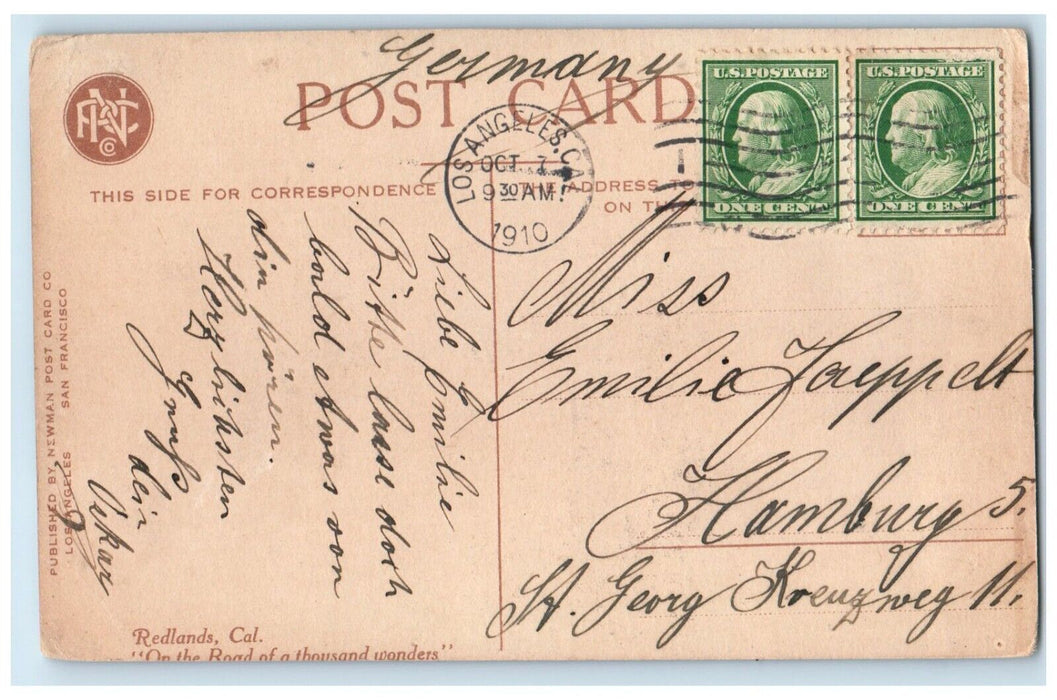 Germany
POST CARD
U.S. POSTAGE
ONE CENT
U.S. POSTAGE
ONE CENT
LOS ANGELES, CA
OCT. 7
9 30 AM
1910
THIS SIDE FOR CORRESPONDENCE
THE ADDRESS TO
ON TH
Liebe Emilie
Bitte lasse doch
bald etwas von
din hören.
Herzlichsten
Gruß
dein
Oskar
Miss
Emilie
Hamburg 5.
St. Georg Kreuzweg 11.
PUBLISHED BY NEWMAN POST CARD CO
LOS ANGELES SAN FRANCISCO
Redlands, Cal.
"On the Road of a thousand wonders"